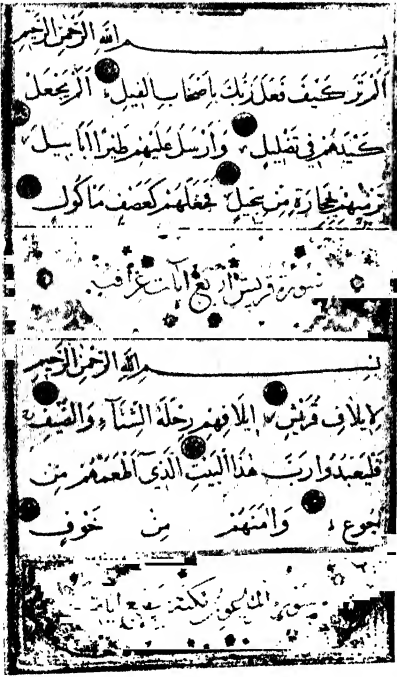 بسم الله الرحمن الرحيم
الم تر كيف فعل ربك باصحاب الفيل الم يجعل
كيدهم في تضليل وارسل عليهم طيرا ابابيل
ترميهم بحجارة من سجيل فجعلهم كعصف ماكول
سورة قريش اربع آيات
بسم الله الرحمن الرحيم
لايلاف قريش ايلافهم رحلة الشتاء والصيف
فليعبدوا رب هذا البيت الذي اطعمهم من
جوع وآمنهم من خوف
سورة الماعون مكية سبع آيات